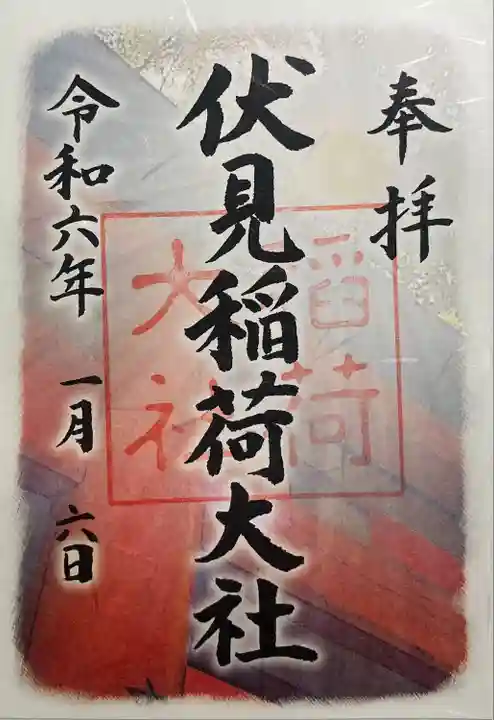 奉拝
伏見稲荷大社
稲荷
大社
令和六年 一月 六日